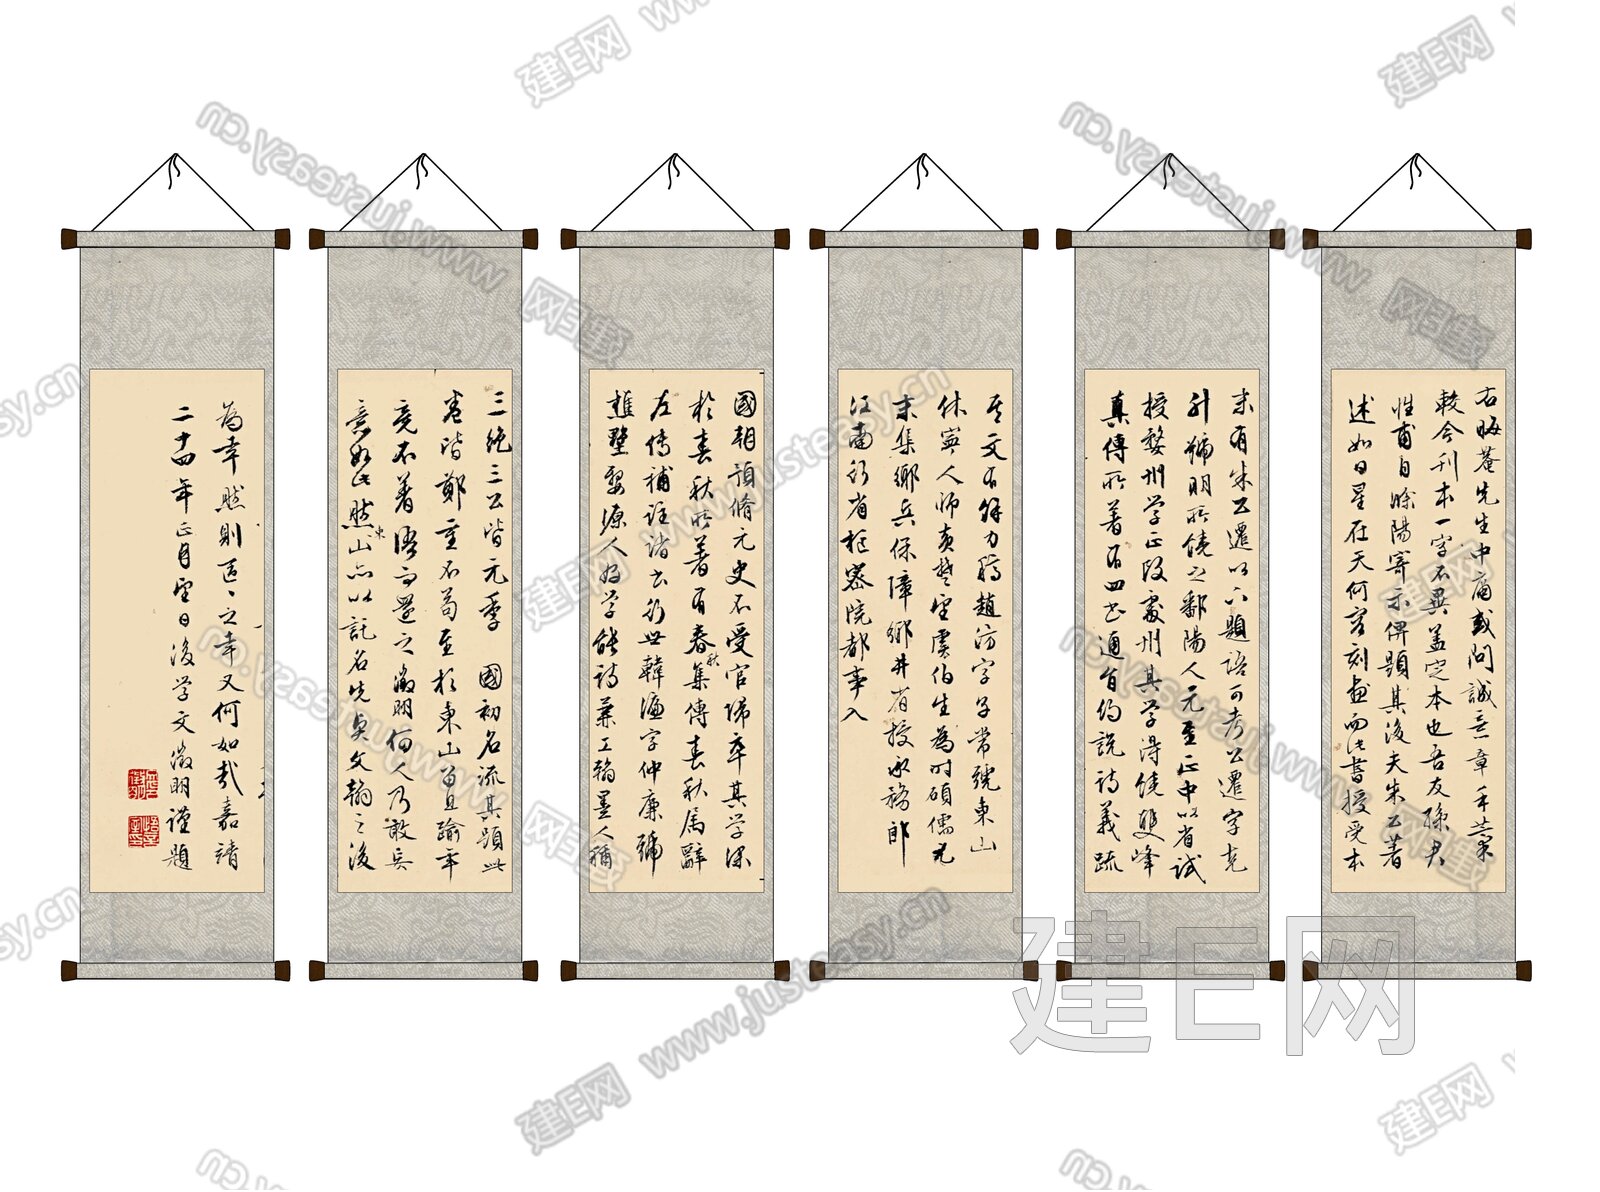 右晦菴先生中庸或问誠意章手藁
較今刊本一字不異蓋定本也吾友孫君
性甫自滁陽寄示俾題其後夫朱公著
述如日星在天何容刻畫而此書授受本
末有朱公遷以下題語可考公遷字克
升號明所饒之鄱陽人元至正中以省試
授婺州学正改處州其学得饒雙峰
真傳所著有四書通旨約說詩義疏
其文有餘力趙汸字子常號東山
休寧人師黄楚望虞伯生為时碩儒元
末集鄉兵保障鄉井省授承務郎
江南行省樞密院都事入
國朝預脩元史不受官歸卒其学深
於春秋所著有春秋集傳春秋屬辭
左傳補註諸书行世韓濂字仲廉號
樵墅婺源人好学能詩兼工翰墨人稱
三絶三公皆元季 國初名流其題此
卷皆鄭重不苟至於東山留且踰年
竟不著語而還之徵明何人乃敢妄
意如此然山東亦以託名先贤文翰之後
為幸然則區々之幸又何如哉嘉靖
二十四年正月望日後学文徵明谨題
建E网
www.justeasy.cn